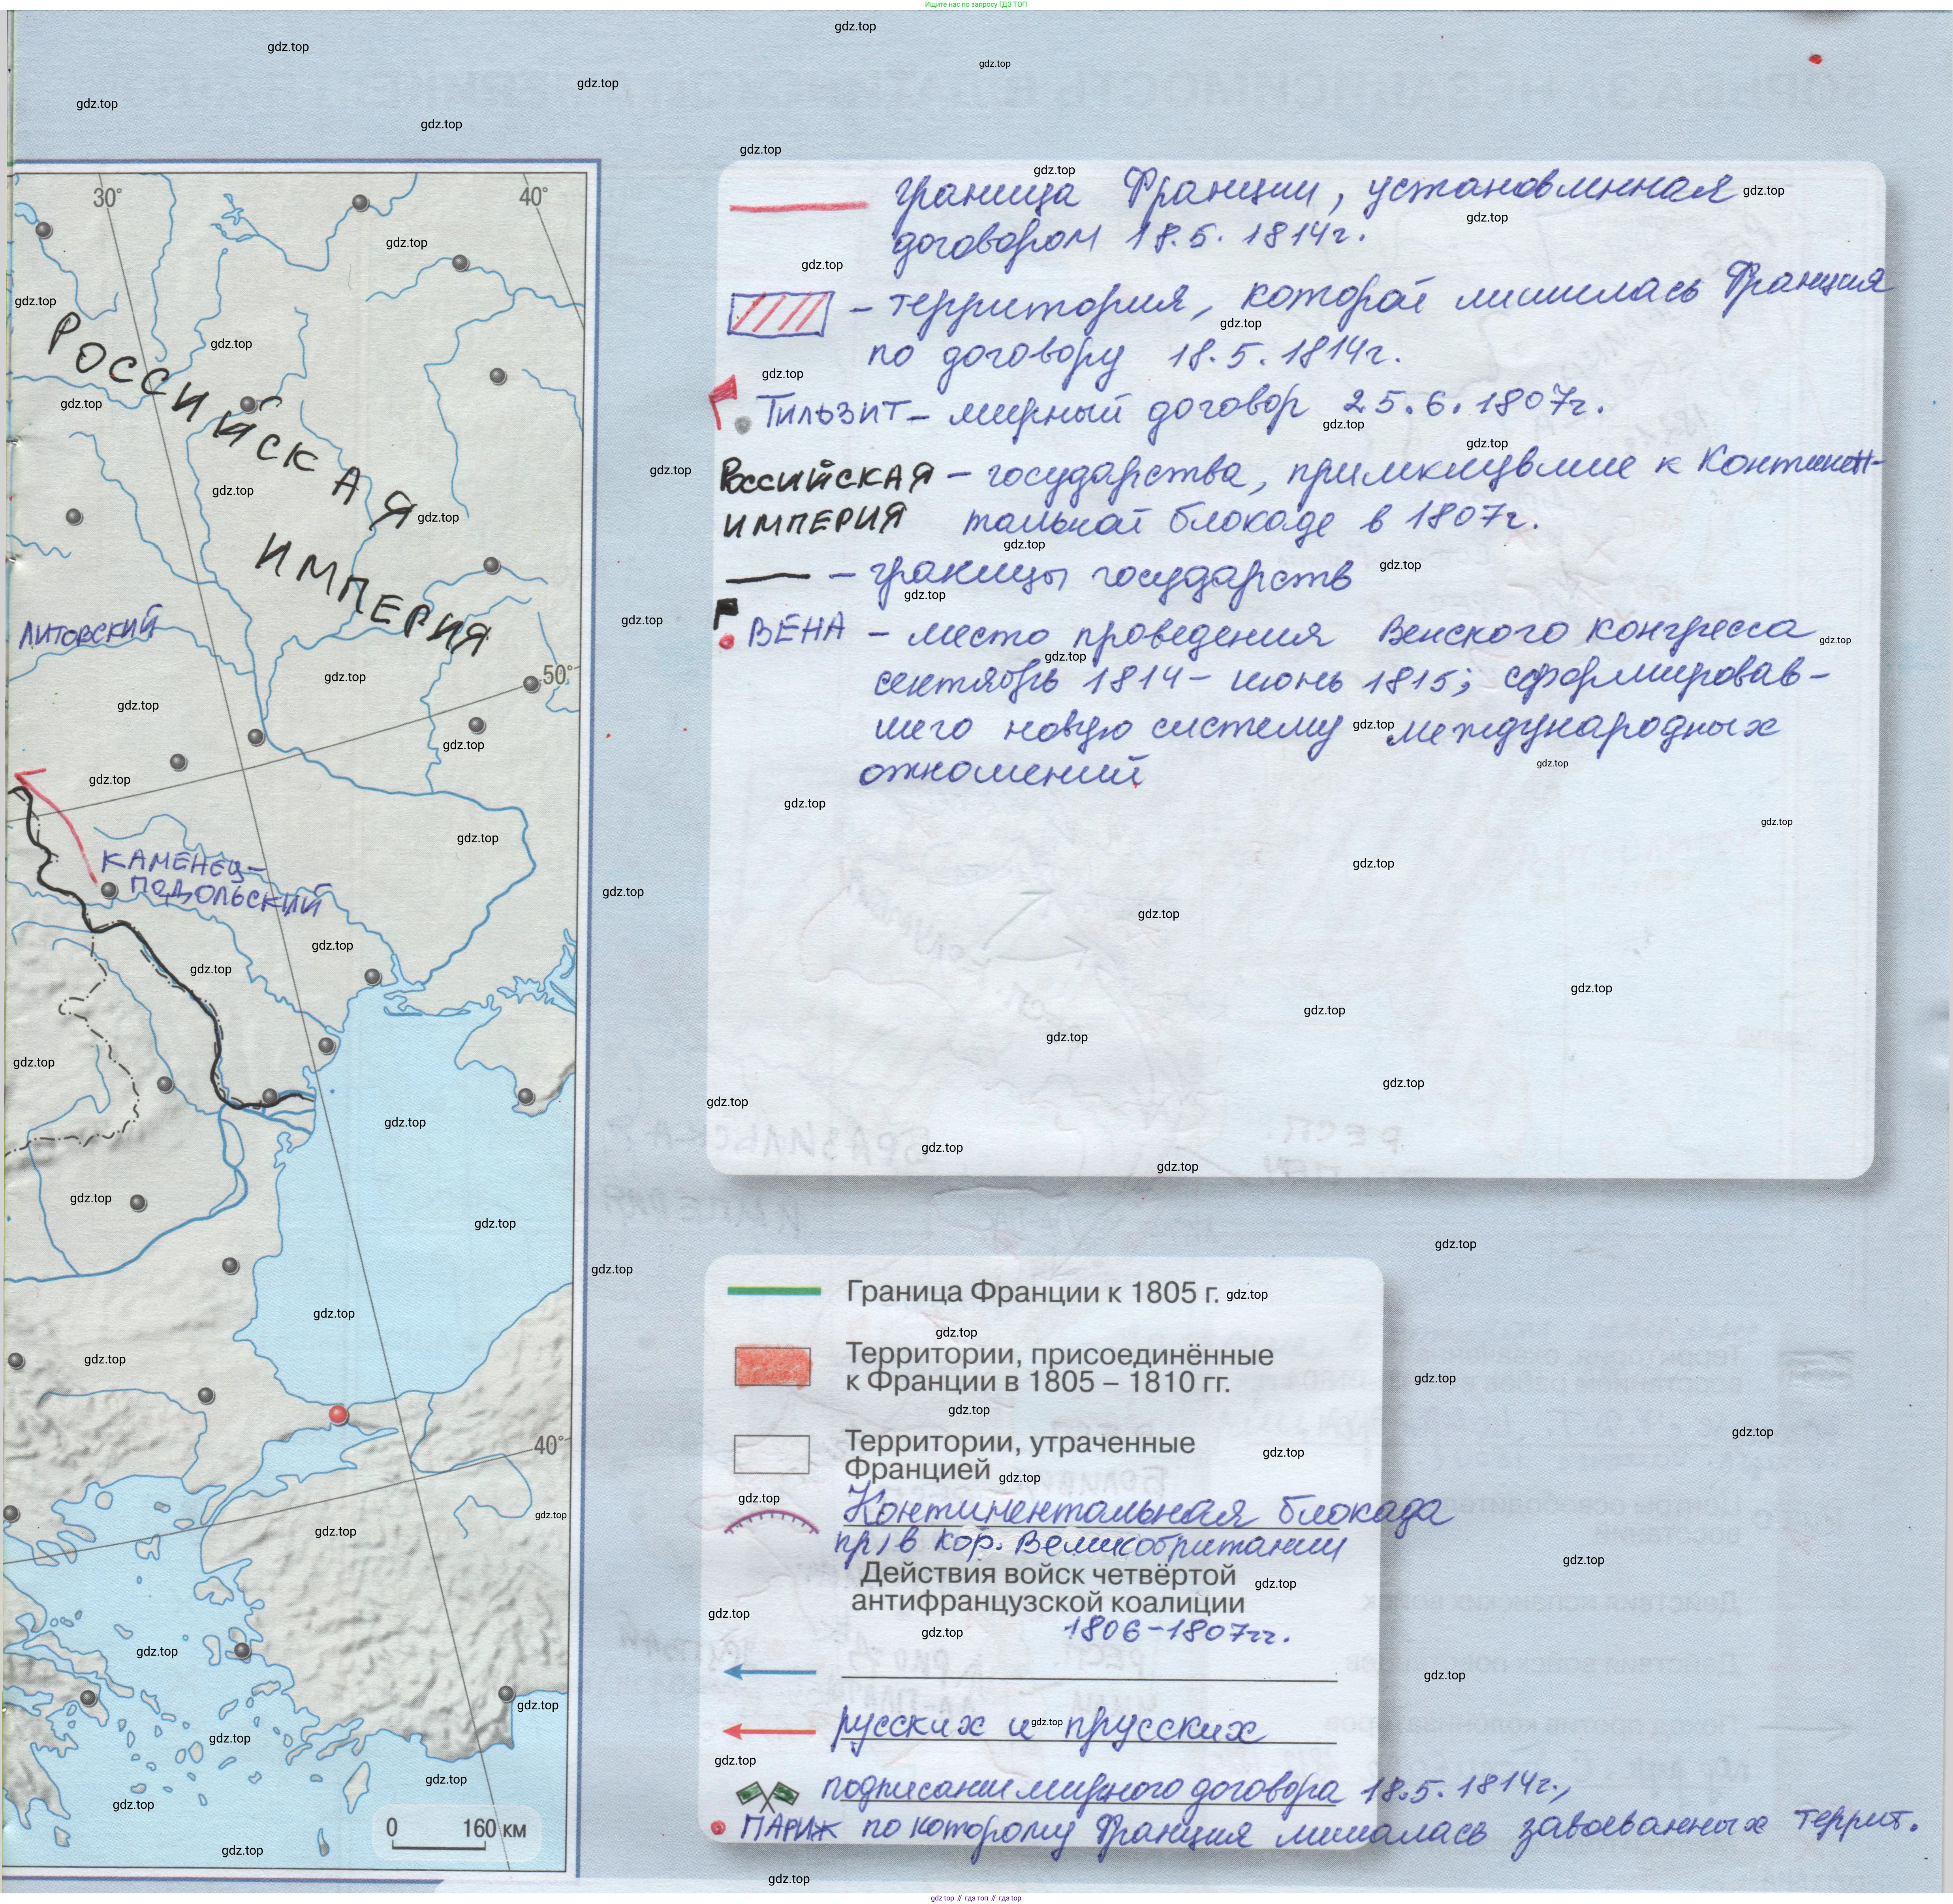 Ищите нас по запросу ГДЗ ТОП
30°
40°
РОССИЙСКАЯ
ИМПЕРИЯ
ЛИТОВСКИЙ
50°
КАМЕНЕЦ-
ПОДОЛЬСКИЙ
40°
0 160 км
граница Франции, установленная
договором 18.5.1814г.
– территория, которой лишилась Франция
по договору 18.5.1814г.
ТИЛЬЗИТ – мирный договор 25.6.1807г.
РОССИЙСКАЯ – государства, примкнувшие к Континен-
ИМПЕРИЯ тальной блокаде в 1807г.
– границы государств
ВЕНА – место проведения Венского конгресса
сентябрь 1814 – июнь 1815; сформировав-
шего новую систему международных
отношений
Граница Франции к 1805 г.
Территории, присоединённые
к Франции в 1805 – 1810 гг.
Территории, утраченные
Францией
Континентальная блокада
пр/в кор. Великобритании
Действия войск четвёртой
антифранцузской коалиции
1806-1807гг.
русских и прусских
подписание мирного договора 18.5.1814г.,
ПАРИЖ по которому Франция лишалась завоеванных террит.
gdz.top
gdz top // гдз топ // гдз top